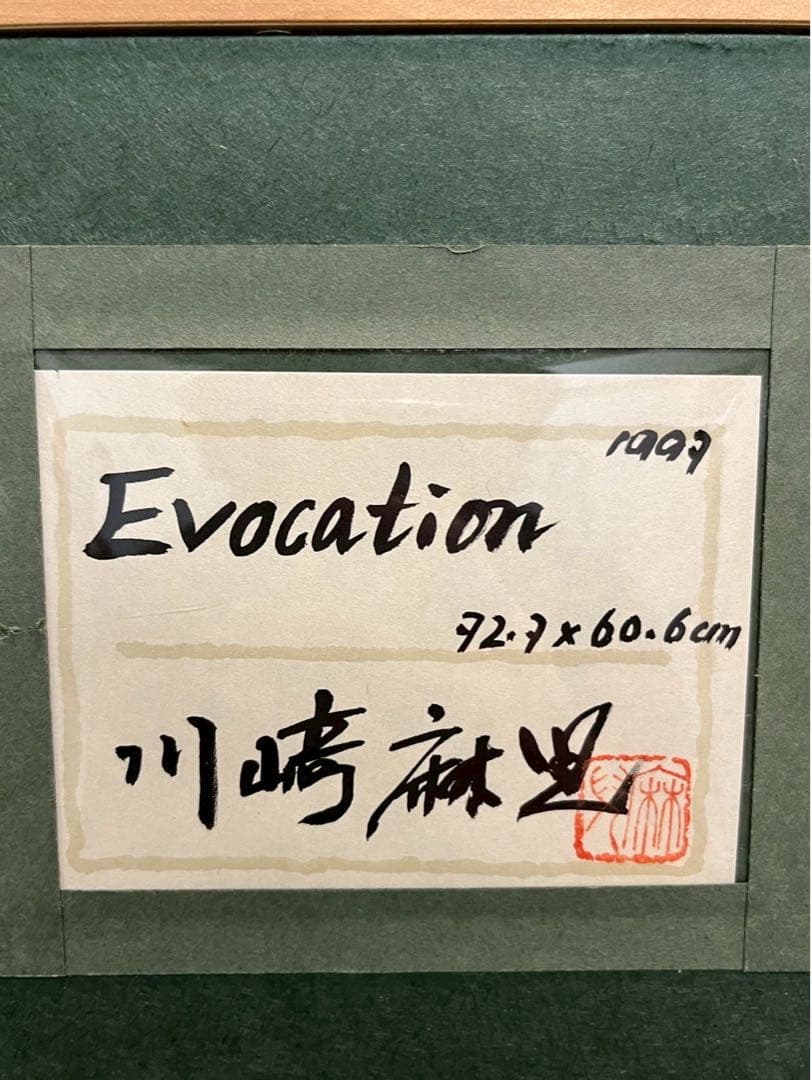 1997
Evocation
72.7×60.6cm
川崎麻児